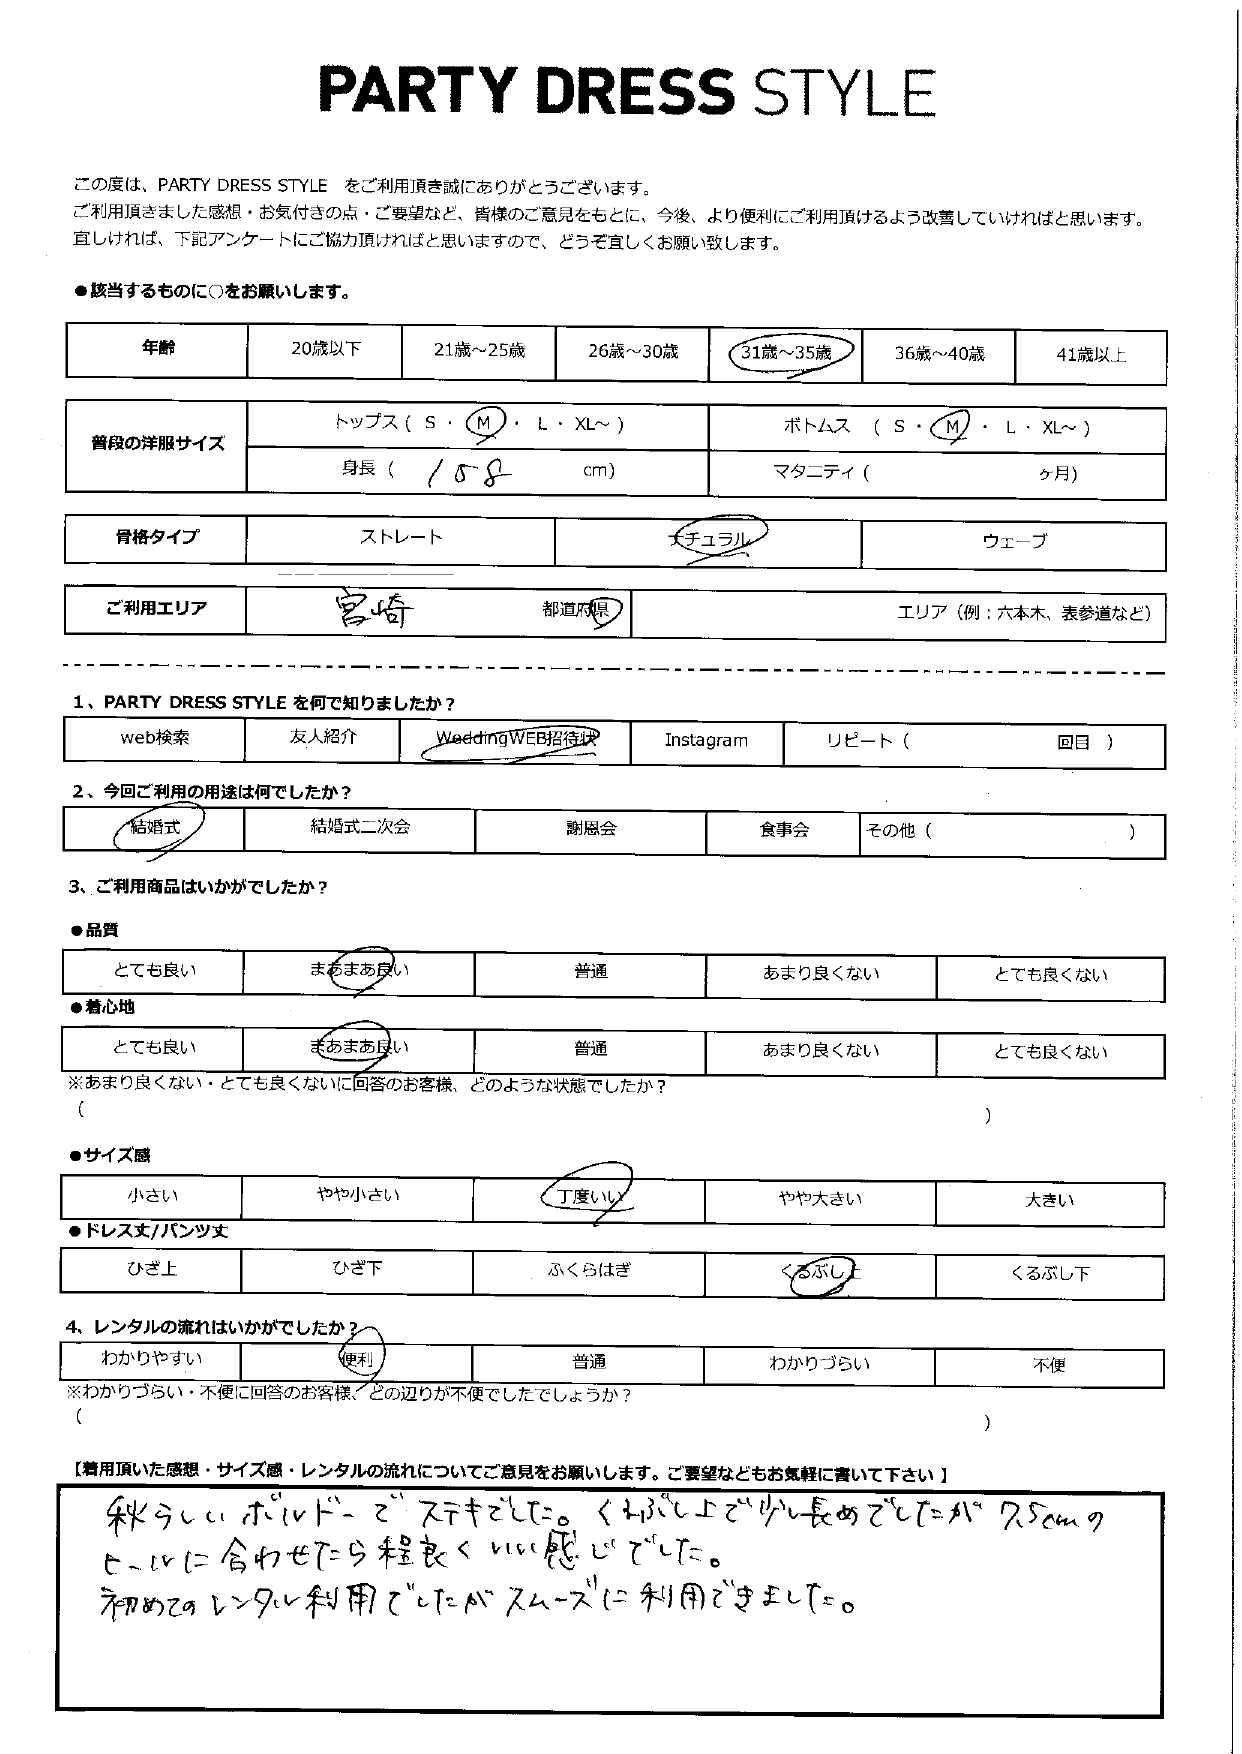 PARTY DRESS STYLE
この度は、PARTY DRESS STYLE をご利用頂き誠にありがとうございます。
ご利用頂きました感想・お気付きの点・ご要望など、皆様のご意見をもとに、今後、より便利にご利用頂けるよう改善していければと思います。
宜しければ、下記アンケートにご協力頂ければと思いますので、どうぞ宜しくお願い致します。
●該当するものに○をお願いします。
年齢 20歳以下 21歳～25歳 26歳～30歳 31歳～35歳 36歳～40歳 41歳以上
普段の洋服サイズ トップス ( S ・ M ・ L ・ XL～ ) ボトムス ( S ・ M ・ L ・ XL～ )
身長 ( 158 cm) マタニティ ( ヶ月)
骨格タイプ ストレート ナチュラル ウェーブ
ご利用エリア 宮崎 都道府県 エリア（例：六本木、表参道など）
1、PARTY DRESS STYLE を何で知りましたか？
web検索 友人紹介 WeddingWEB招待状 Instagram リピート ( 回目 )
2、今回ご利用の用途は何でしたか？
結婚式 結婚式二次会 謝恩会 食事会 その他 ( )
3、ご利用商品はいかがでしたか？
●品質
とても良い まあまあ良い 普通 あまり良くない とても良くない
●着心地
とても良い まあまあ良い 普通 あまり良くない とても良くない
※あまり良くない・とても良くないに回答のお客様、どのような状態でしたか？
( )
●サイズ感
小さい やや小さい 丁度いい やや大きい 大きい
●ドレス丈/パンツ丈
ひざ上 ひざ下 ふくらはぎ くるぶし上 くるぶし下
4、レンタルの流れはいかがでしたか？
わかりやすい 便利 普通 わかりづらい 不便
※わかりづらい・不便に回答のお客様、どの辺りが不便でしたでしょうか？
( )
【着用頂いた感想・サイズ感・レンタルの流れについてご意見をお願いします。ご要望などもお気軽に書いて下さい 】
秋らしいボルドーでステキでした。くるぶし上で少し長めでしたが 7.5cmの
ヒールに合わせたら程良くいい感じでした。
初めてのレンタル利用でしたがスムーズに利用できました。